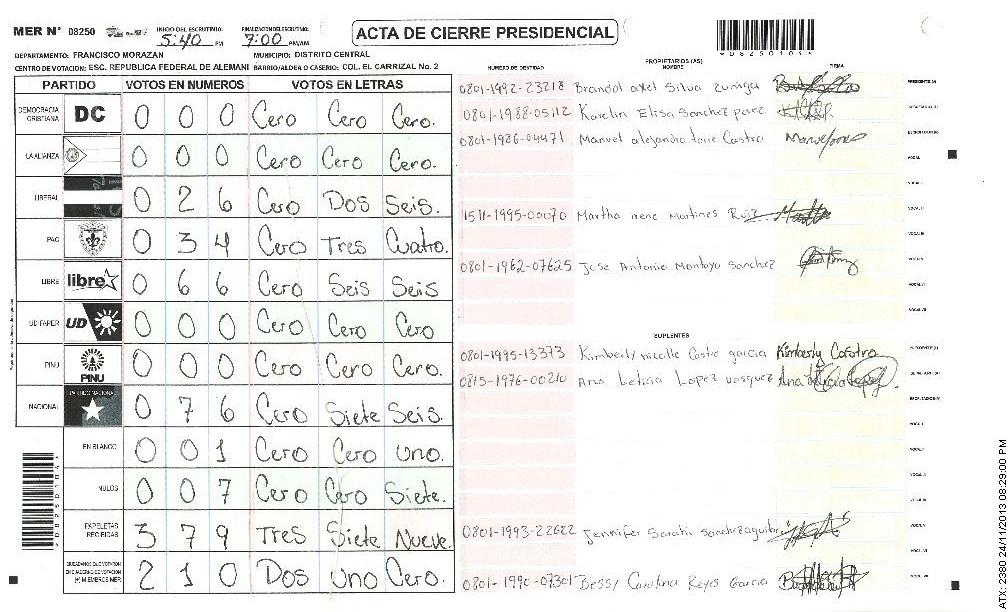 MER N° 08250 INICIO DEL ESCRUTINIO: 5:40 PM FINALIZACION DEL ESCRUTINIO: 7:00 PM/AM ACTA DE CIERRE PRESIDENCIAL
DEPARTAMENTO: FRANCISCO MORAZAN MUNICIPIO: DISTRITO CENTRAL
CENTRO DE VOTACION: ESC. REPUBLICA FEDERAL DE ALEMANI BARRIO/ALDEA O CASERIO: COL. EL CARRIZAL No. 2
PARTIDO VOTOS EN NUMEROS VOTOS EN LETRAS
DEMOCRACIA CRISTIANA DC 0 0 0 Cero Cero Cero.
LA ALIANZA 0 0 0 Cero Cero Cero.
LIBERAL 0 2 6 Cero Dos Seis.
PAC 0 3 4 Cero Tres Cuatro.
LIBRE libre 0 6 6 Cero Seis Seis
UD-FAPER UD 0 0 0 Cero Cero Cero
PINU PINU 0 0 0 Cero Cero Cero.
NACIONAL PARTIDO NACIONAL 0 7 6 Cero Siete Seis.
EN BLANCO 0 0 1 Cero Cero uno.
NULOS 0 0 7 Cero Cero Siete.
PAPELETAS RECIBIDAS 3 7 9 Tres Siete Nueve.
CIUDADANOS QUE VOTARON EN CUADERNO DE VOTACION (+) MIEMBROS MER 2 1 0 Dos uno Cero.
PROPIETARIOS (AS)
NUMERO DE IDENTIDAD NOMBRE FIRMA
0801-1992-23218 Brandol axel Silva zuniga PRESIDENTE (A)
0801-1988-05112 Karelin Elisa Sanchez perez SECRETARIO (A)
0801-1986-04471 Manuel alejandro torre Castro ESCRUTADOR (A)
VOCAL I
VOCAL II
1511-1995-00070 Martha irene Martines Ruiz VOCAL III
VOCAL IV
0801-1962-07625 Jose Antonio Montoya Sanchez VOCAL V
VOCAL VI
VOCAL VII
SUPLENTES
0801-1995-13373 Kimberly nicolle Castro garcia Kimberly Castro PRESIDENTE (A)
0815-1976-00210 Ana Leticia Lopez vasquez SECRETARIO (A)
ESCRUTADOR (A)
VOCAL I
VOCAL II
VOCAL III
VOCAL IV
0801-1993-22622 Jennifer Sarahi Sanchez aguilar VOCAL V
VOCAL VI
0801-1990-07301 Bessy Carolina Reyes Garcia VOCAL VII
ATX: 2380 24/11/2013 08:29:00 PM